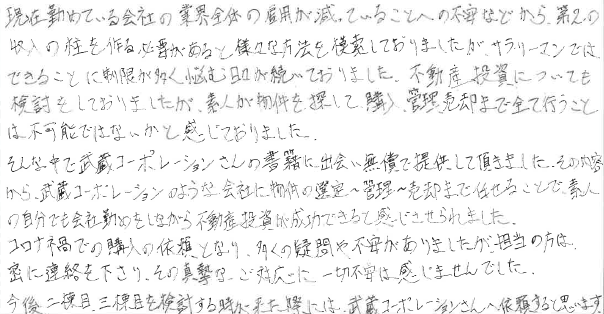 現在勤めている会社の業界全体の雇用が減っていることへの不安などから、第2の
収入の柱を作る必要があると様々な方法を模索しておりましたが、サラリーマンでは
できることに制限が多く悩む日々が続いておりました。不動産投資についても
検討をしておりましたが、素人が物件を探して購入、管理、売却まで全て行うこと
は不可能ではないかと感じておりました。
そんな中で武蔵コーポレーションさんの書籍に出会い無償で提供して頂きました。その内容
から、武蔵コーポレーションのような会社に物件の選定～管理～売却まで任せることで、素人
の自分でも会社勤めをしながら不動産投資が成功できると感じさせられました。
コロナ禍での購入の依頼となり、多くの疑問や不安がありましたが担当の方は、
密に連絡を下さり、その真摯なご対応に一切不安は感じませんでした。
今後二棟目、三棟目を検討する時が来た際には、武蔵コーポレーションさんへ依頼すると思います